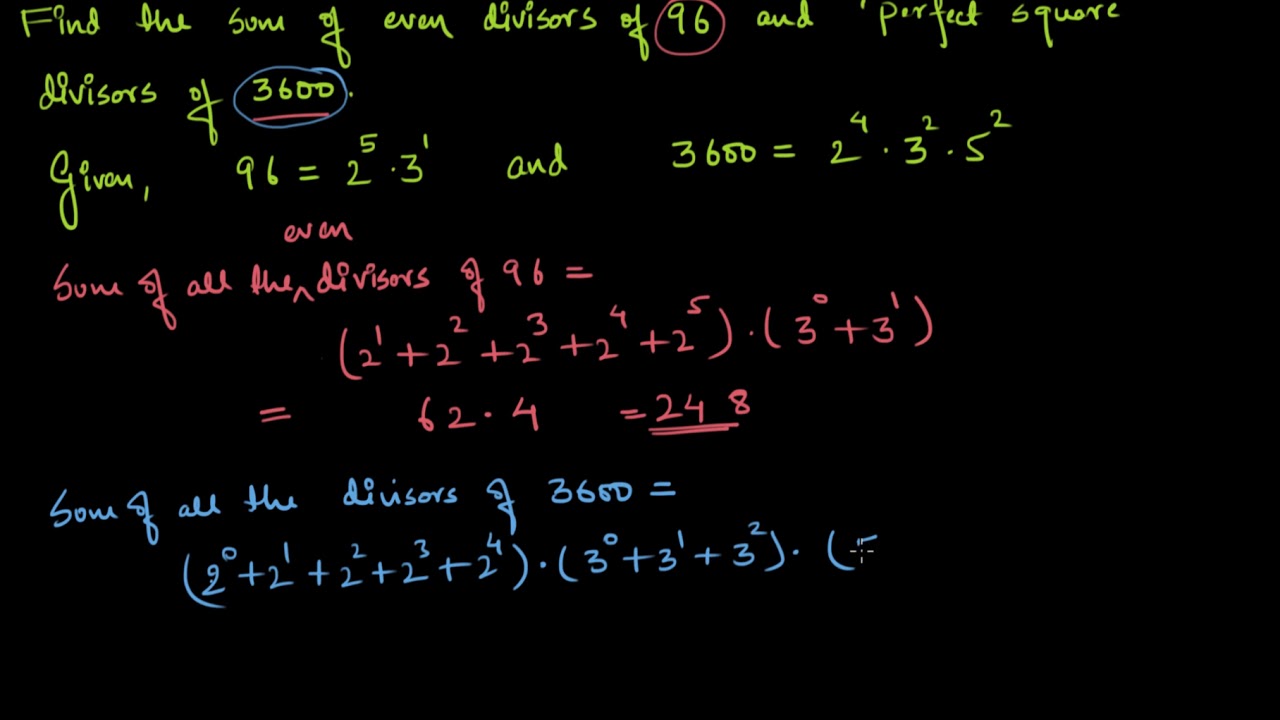 Find the sum of even divisors of 96 and 'perfect square
divisors of 3600.
Given, 96 = 2^5 · 3^1 and 3600 = 2^4 · 3^2 · 5^2
even
Sum of all the ^ divisors of 96 =
(2^1 + 2^2 + 2^3 + 2^4 + 2^5) · (3^0 + 3^1)
= 62 · 4 = 248
Sum of all the divisors of 3600 =
(2^0 + 2^1 + 2^2 + 2^3 + 2^4) · (3^0 + 3^1 + 3^2) · (5